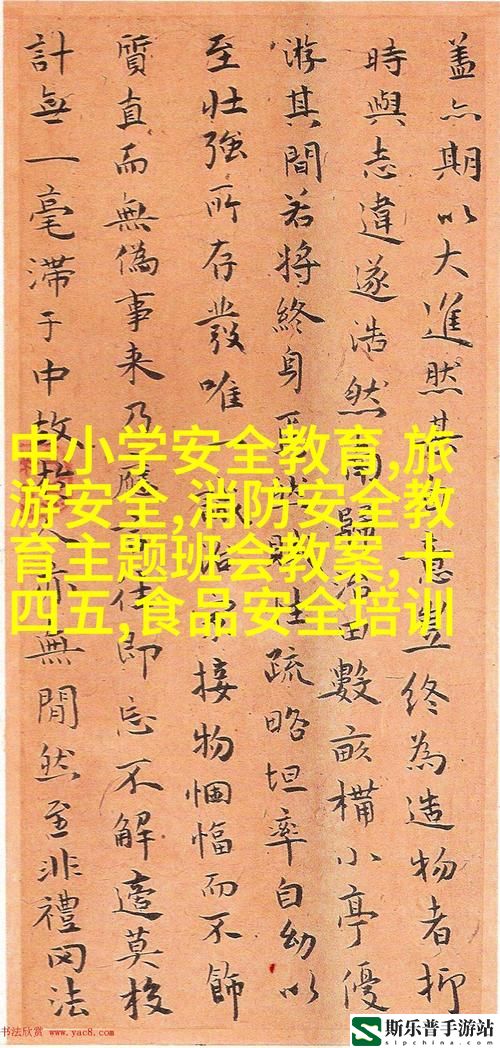 盖亦期以大進然其
意豈終為造物者抑
時與志違遂浩然
歸
田數畝構小亭優
游其間若将終身
性疏略坦率自幼以
至壮強所存發唯一
接物悃愊而不飾
質直而無偽事来乃應
即忘不解逢莫梭
計無一毫滞于中故
亦無閒然至非禮罔法
中小学安全教育,旅
游安全,消防安全教
育主题班会教案,十
四五,食品安全培训
书法欣赏 www.yac8.com
斯乐普手游站
slpchina.com